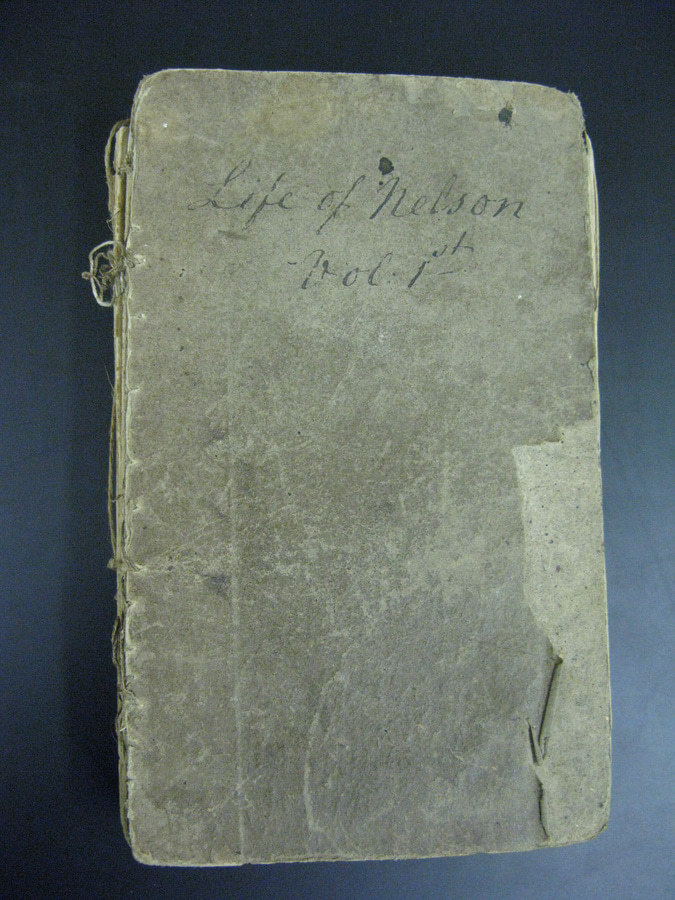 Life of Nelson
Vol. 1st